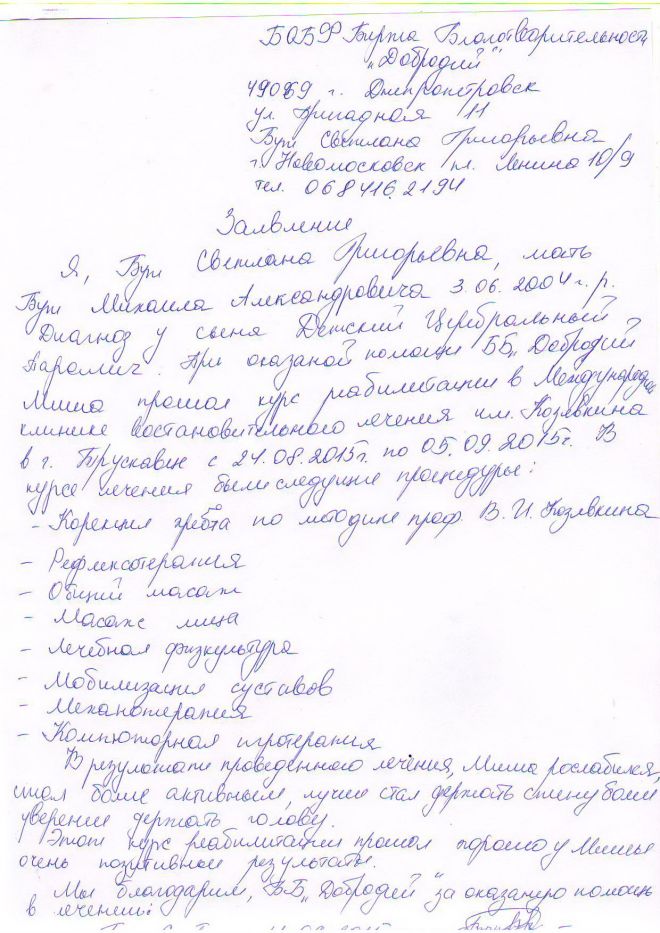 БОБФ Биржа Благотворительности
"Добродий"
49069 г. Днепропетровск
ул. Бригадная 11
Светлана Григорьевна
г. Новомосковск пл. Ленина 10/9
тел. 068 416 21 94
Заявление
Я, Светлана Григорьевна, мать
Михаила Александровича 3.06.2004 г.р.
Диагноз у сына Детский Церебральный
Паралич. При оказаной помощи ББ „Добродий"
Миша прошол курс реабилитации в Международной
клинике востановительного лечения им. Козявкина
в г. Трускавец с 24.08.2015г. по 05.09.2015г. В
курсе лечения были следущие процедуры:
- Корекция хребта по методике проф. В. И. Козявкина
- Рефлексотерапия
- Общий масаж
- Масаж лица
- Лечебная физкультура
- Мобилизация суставов
- Механотерапия
- Компюторная игротерапия
В результате проведенного лечения, Миша рослабился,
стал более активным, лучше стал держать спину более
уверенно держать голову.
Этот курс реабилитации прошол хорошо у Миши
очень позутивные результаты.
Мы благодарим, ББ „Добродий" за оказаную помощь
в лечении: